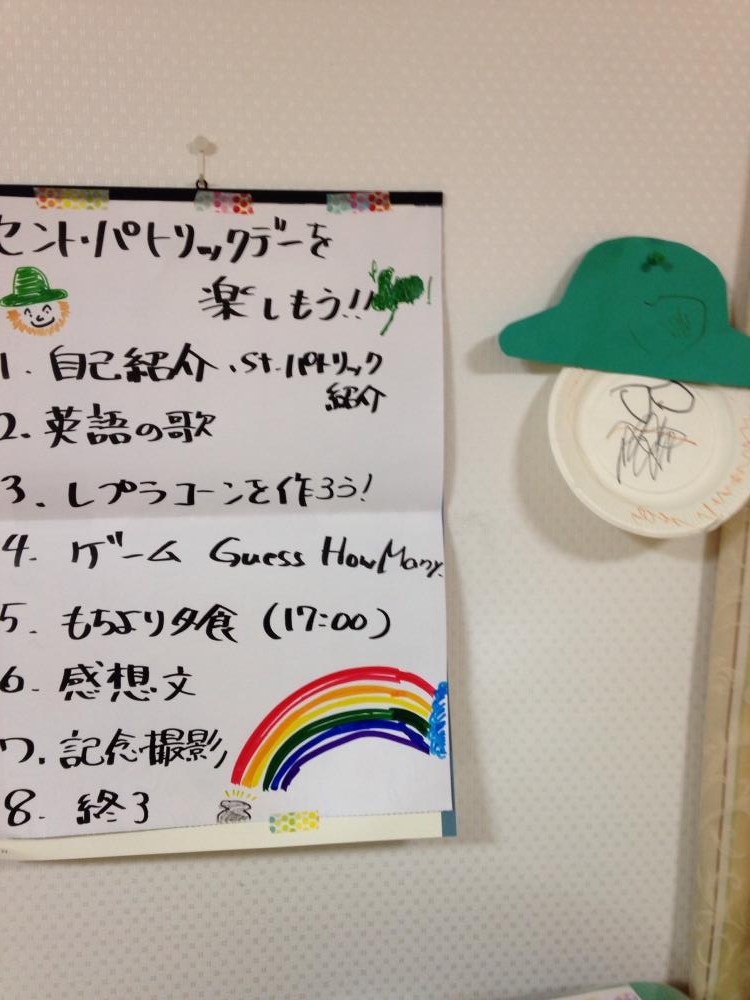 セント・パトリックデーを
楽しもう!!
1. 自己紹介・St.パトリック
紹介
2. 英語の歌
3. レプラコーンを作ろう!
4. ゲーム Guess How Many.
5. もちより夕食 (17:00)
6. 感想文
7. 記念撮影
8. 終了